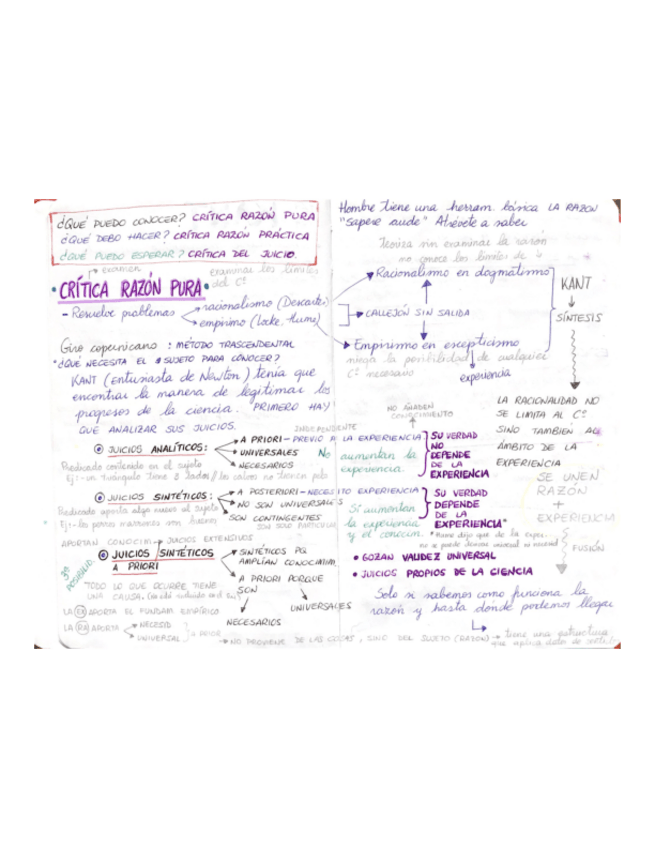 ¿QUÉ PUEDO CONOCER? CRÍTICA RAZÓN PURA
¿QUÉ DEBO HACER? CRÍTICA RAZÓN PRÁCTICA
¿QUÉ PUEDO ESPERAR? CRÍTICA DEL JUICIO.
examen
examinar los límites
del Cº
• CRÍTICA RAZÓN PURA •
- Resuelve problemas
racionalismo (Descartes)
empirismo (Locke, Hume)
Giro copernicano : MÉTODO TRASCENDENTAL
• ¿QUÉ NECESITA EL SUJETO PARA CONOCER?
KANT (entusiasta de Newton) tenía que
encontrar la manera de legitimar los
progresos de la ciencia. PRIMERO HAY
QUE ANALIZAR SUS JUICIOS.
INDEPENDIENTE
JUICIOS ANALÍTICOS:
A PRIORI - PREVIO A LA EXPERIENCIA
UNIVERSALES
NECESARIOS
Predicado contenido en el sujeto
Ej:- un triángulo tiene 3 lados // los calvos no tienen pelo
JUICIOS SINTÉTICOS:
A POSTERIORI - NECESITO EXPERIENCIA
NO SON UNIVERSALES
SON CONTINGENTES
SON SOLO PARTICULAR
Predicado aporta algo nuevo al sujeto
Ej:- los perros marrones son buenos
APORTAN CONOCIM → JUICIOS EXTENSIVOS
3ª POSIBILID.
JUICIOS SINTÉTICOS
A PRIORI
SINTÉTICOS PQ
AMPLÍAN CONOCIMIEN
A PRIORI PORQUE
SON
UNIVERSALES
NECESARIOS
TODO LO QUE OCURRE TIENE
UNA CAUSA.
LA EX APORTA EL FUNDAM EMPÍRICO
LA RA APORTA
NECESID
UNIVERSAL
A PRIORI
→ NO PROVIENE DE LAS COSAS, SINO DEL SUJETO (RAZÓN) → tiene una estructura
Hombre tiene una herram. básica LA RAZÓN
"Sapere aude" Atrévete a saber
Teoriza sin examinar la razón
no conoce los límites de
Racionalismo en dogmatismo
CALLEJÓN SIN SALIDA
Empirismo en escepticismo
niega la posibilidad de cualquier
Cº necesario
experiencia
KANT
SÍNTESIS
LA RACIONALIDAD NO
SE LIMITA AL Cº
SINO TAMBIÉN AL
ÁMBITO DE LA
EXPERIENCIA
SE UNEN
RAZÓN
+
EXPERIENCIA
FUSIÓN
NO AÑADEN
CONOCIMIENTO
No aumentan la
experiencia.
SU VERDAD
NO
DEPENDE
DE LA
EXPERIENCIA
Sí aumentan
la experiencia
y el conocim.
SU VERDAD
DEPENDE
DE LA
EXPERIENCIA*
*Hume dijo que de la exper.
no se puede
• GOZAN VALIDEZ UNIVERSAL
• JUICIOS PROPIOS DE LA CIENCIA
Solo si sabemos como funciona la
razón y hasta donde podemos llegar